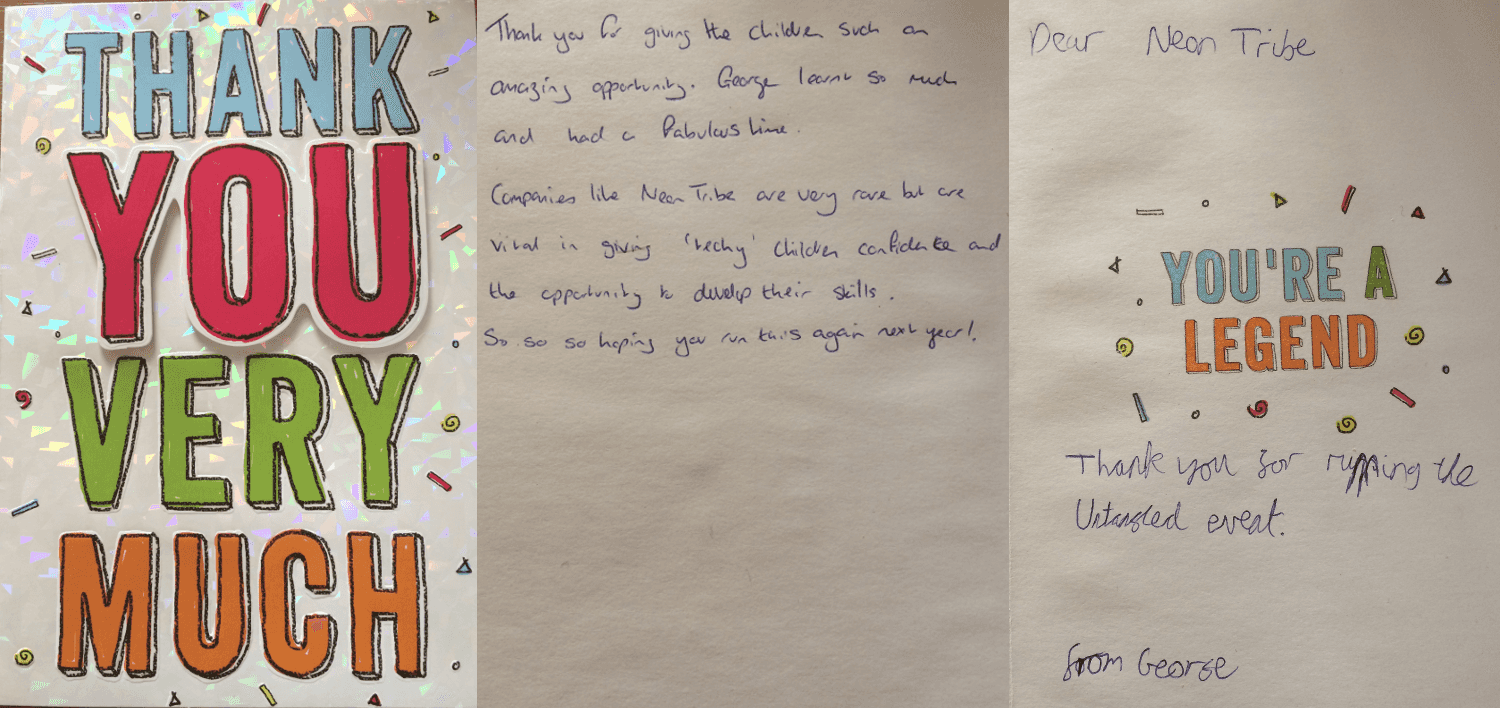 THANK
YOU
VERY
MUCH
Thank you for giving the children such an
amazing opportunity. George learnt so much
and had a fabulous time.
Companies like Neon Tribe are very rare but are
vital in giving 'techy' children confidence and
the opportunity to develop their skills.
So so so hoping you run this again next year!
Dear Neon Tribe
YOU'RE A
LEGEND
Thank you for running the
Untangled event.
from George